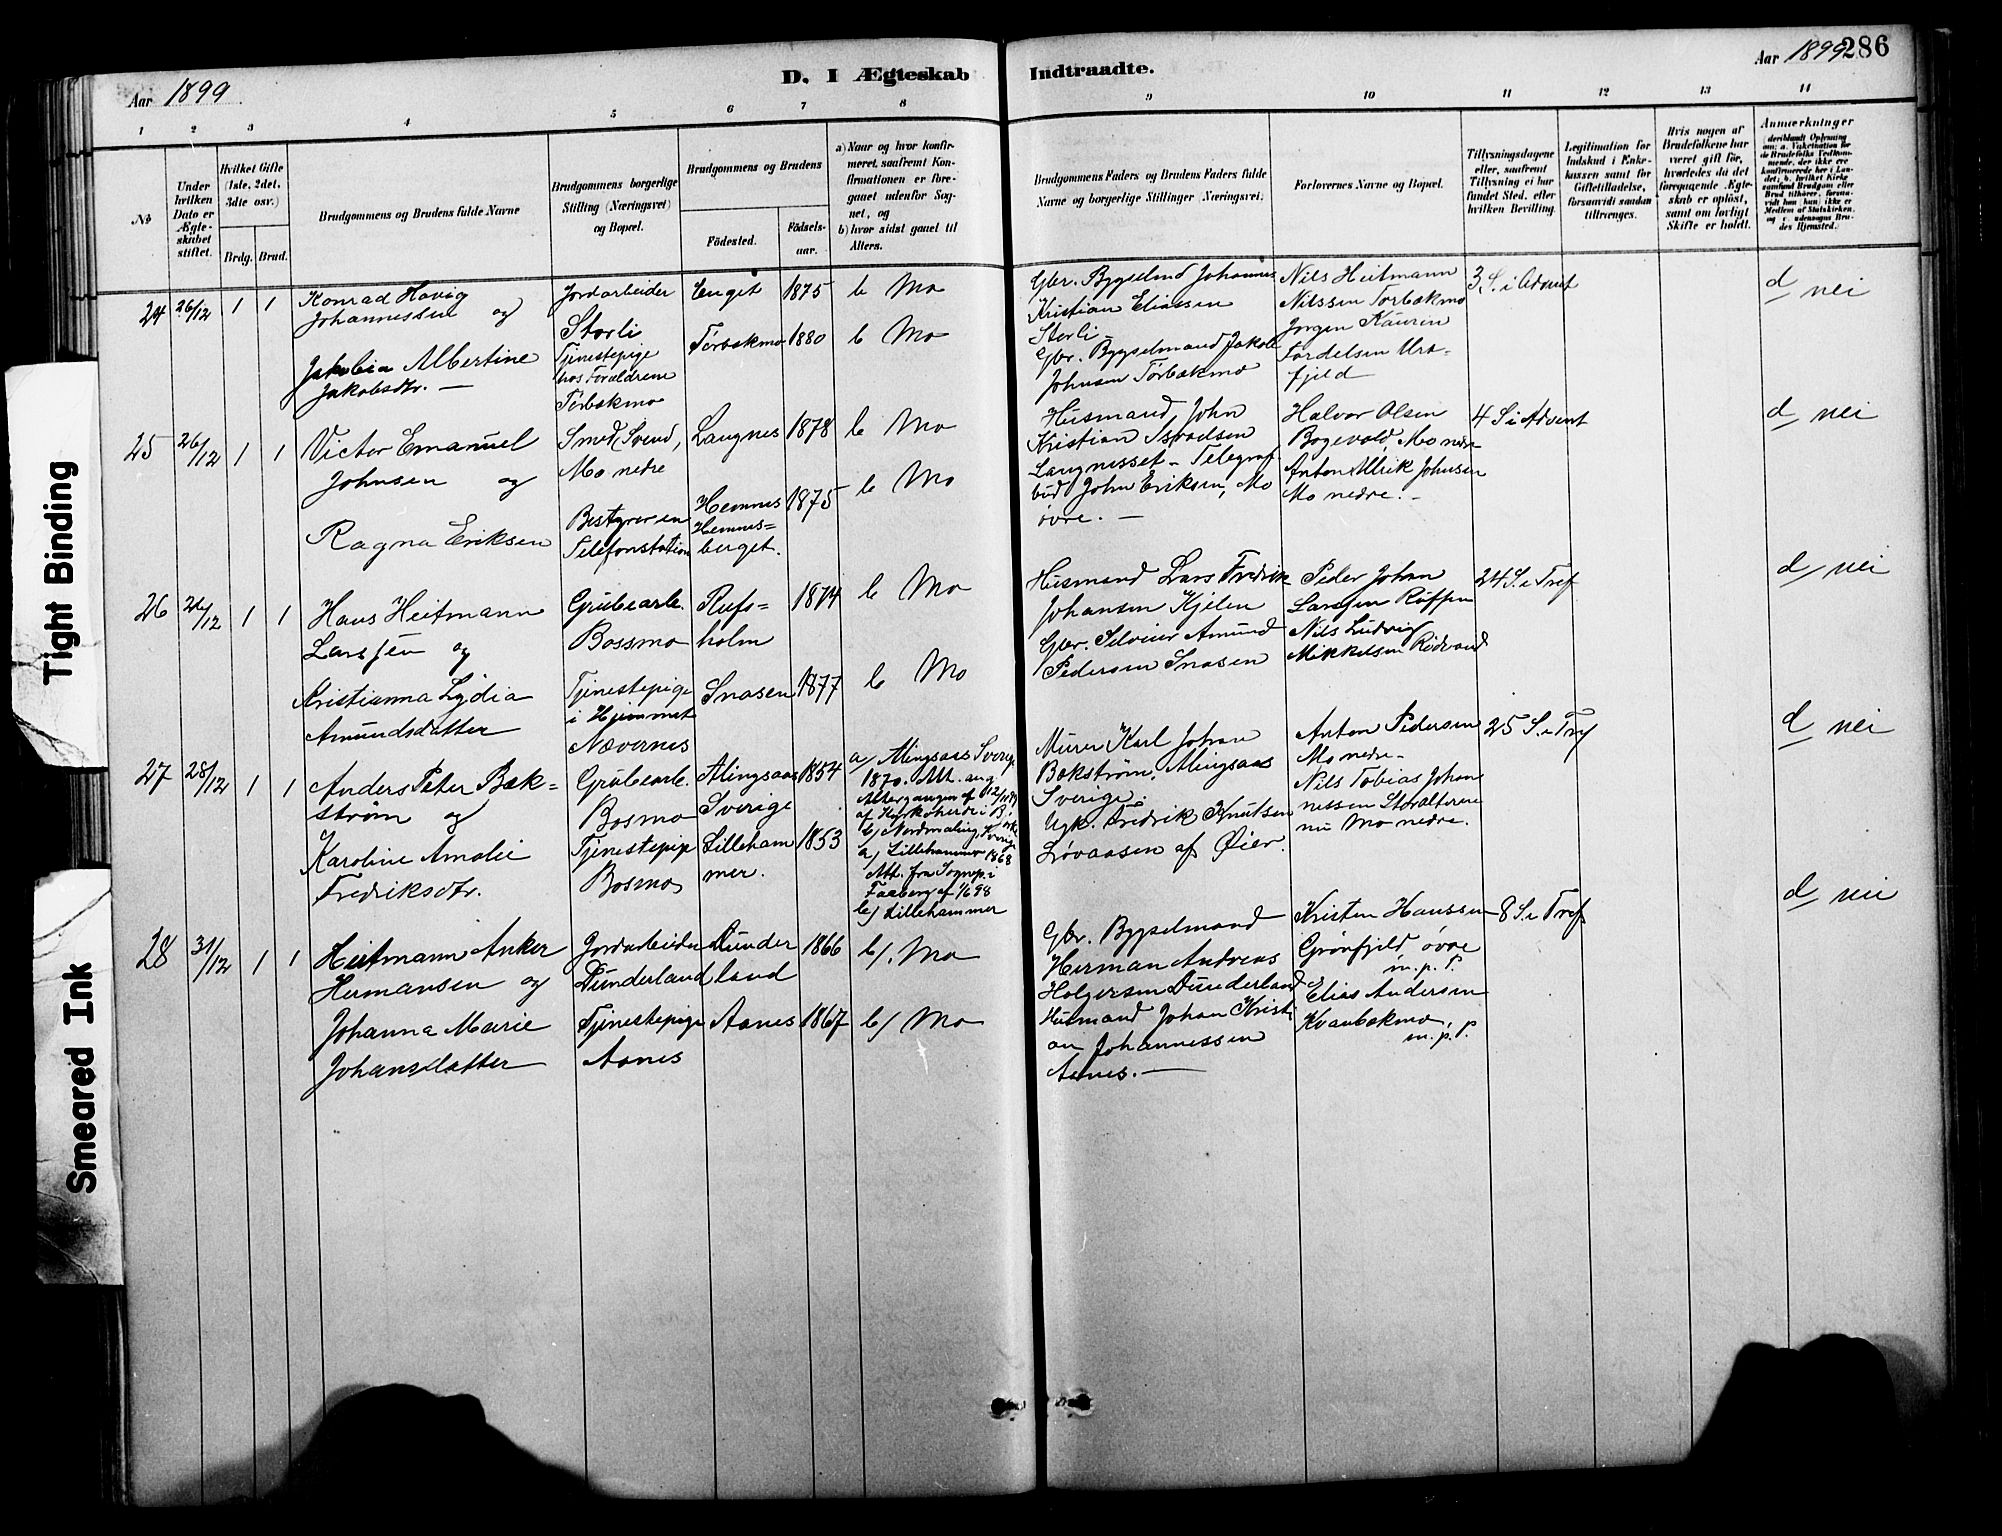 Aar 1899
D. I Ægteskab
Indtraadte.
Aar 1899
286
1 2 3 4 5 6 7 8 9 10 11 12 13 14
No
Under
hvilken
Dato er
Ægte-
skabet
stiftet.
Hvilket Gifte
(1ste, 2det,
3die osv.)
Brdg. Brud.
Brudgommens og Brudens fulde Navne
Brudgommens borgerlige
Stilling (Næringsvei)
og Bopæl.
Brudgommens og Brudens
Födested.
Födsels-
aar.
a) Naar og hvor konfir-
meret, saafremt Kon-
firmationen er fore-
gaaet udenfor Sog-
net, og
b) hvor sidst gaaet til
Alters.
Brudgommens Faders og Brudens Faders fulde
Navne og borgerlige Stillinger (Næringsvei)
Forlovernes Navne og Bopæl.
Tillysningsdagene
eller, saafremt
Tillysning ei har
fundet Sted, efter
hvilken Bevilling.
Legitimation for
Indskud i Enke-
kassen samt for
Giftetilladelse,
forsaavidt saadan
tiltrænges.
Hvis nogen af
Brudefolkene har
været gift för,
hvorledes da det
foregaaende Ægte-
skab er oplöst,
samt om lovligt
Skifte er holdt.
Anmærkninger
24 26/12 1 1
Konrad Havig
Johannessen og
Jakobia Albertine
Jakobsdtr. —
Jordarbeider
Storli
Tjenestepige
hos Forældrene
Torbækmo
Enget 1875 b Mo
Torbækmo 1880 b Mo
Gbr. Bygselmd Johannes
Kristian Eliassen
Storli
Gbr. Bygselmand Jakob
Johnsen Torbækmo
Nils Heitmann
Nilssen Torbækmo
Jørgen Kaurin
Tordelsen Ura-
fjeld
3 S. i Advent
d/ nei
25 26/12 1 1
Victor Emanuel
Johnsen og
Ragna Eriksen
Smed, Svend,
Mo nedre
Bestyrer en
Telefonstation
Langnes 1878 b Mo
Hemnes
Hemnes-
berget. 1875 b Mo
Husmand John
Kristian
Langnesset - Telegraf
bud John Eriksen, Mo
övre. —
Halvor Olsen
Bogevold, Mo nedre
Anton Ulrik Johnsen
Mo nedre. -
4 S i Advent
d/ nei
26 /12 1 1
Hans Heitmann
Larssen og
Kristianna Lydia
Amundsdatter
Grubearb.
Bossmo
Tjenestepige
i Hjemmet
Nævernes
Rufs-
holm 1874 b Mo
Snasen 1877 b Mo
Husmand Lars Fredrik
Johansen Kjelen
Gbr. Selveier Amund
Pedersen Snasen
Peder Johan
Larssen
Nils Ludvig
Mikkelsen Rödvand
24 S. i Tref
d/ nei
27 28/12 1 1
Anders Peter Bæk-
strøm og
Karoline Amalie
Fredriksdtr.
Grubearb.
Bosmo
Tjenestepig
Bosmo
Alingsaas
Sverige 1854
Lilleham
mer. 1853
a/ Alingsaas Sverige
1870. Att. ang
Altergangen af 12/11 99
af Kyrkoherde i
b/ Nordmaling Sverige
a/ Lillehammer 1868
Att. fra Sognep. i
Faaberg af 1/6 98
b/ Lillehammer
Murer Karl Johan
Bækstrøm, Alingsaas
Sverige.
Ugk. Fredrik Knutsen
Løvaasen af Øier.
Anton Pedersen
Mo nedre-
Nils Tobias Johan
nessen Storalteren
nu Mo nedre.
25 S. i Tref
d/ nei
28 31/12 1 1
Heitmann Anker
Hermansen og
Johanna Marie
Johansdatter
Jordarbeider
Dunderland
Tjenestepige
Aanes
Dunder
land 1866 b/. Mo
Aanes 1867 b/ Mo
Gbr. Bygselmand
Herman Andreas
Holgersen Dunderland
Husmand Johan Kristi
an Johannessen
Aanes. —
Kristen Hanssen
Grönfjeld övre
m.p.P.
Elias Andersen
Kvanbækmo
m.p.P.
8 S. i Tref
d/ nei
Tight Binding
Smeared Ink